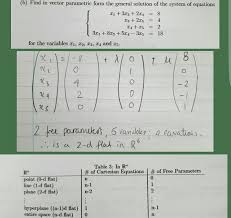 (b) Find in vector parametric form the general solution of the system of equations
= 8
= 4
x₄ + x₅ = 2
= 18
for the variables x₁, x₂, x₃, x₄ and x₅.
x₁ = -8 + λ 0 + μ 8
x₂ 0 1 0
x₃ 4 0 -2
x₄ 2 0
x₅ 0 0
2 free parameters, 5 variables, equations.
∴ is a 2-d flat in R⁵
Table 3: In Rⁿ
Rⁿ # of Cartesian Equations # of Free Parameters
point (0-d flat) n 0
line (1-d flat) n-1 1
plane (2-d flat) n-2 2
hyperplane (n-1)d flat 1 n-1
entire space (n-d flat) 0 n